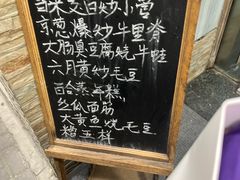 交白炒小
京葱爆炒牛里脊
大肠臭豆腐烧牛蛙
六月黄炒毛豆
百合蒸糕
丝瓜面筋
大黄鱼烧毛豆
糟五样